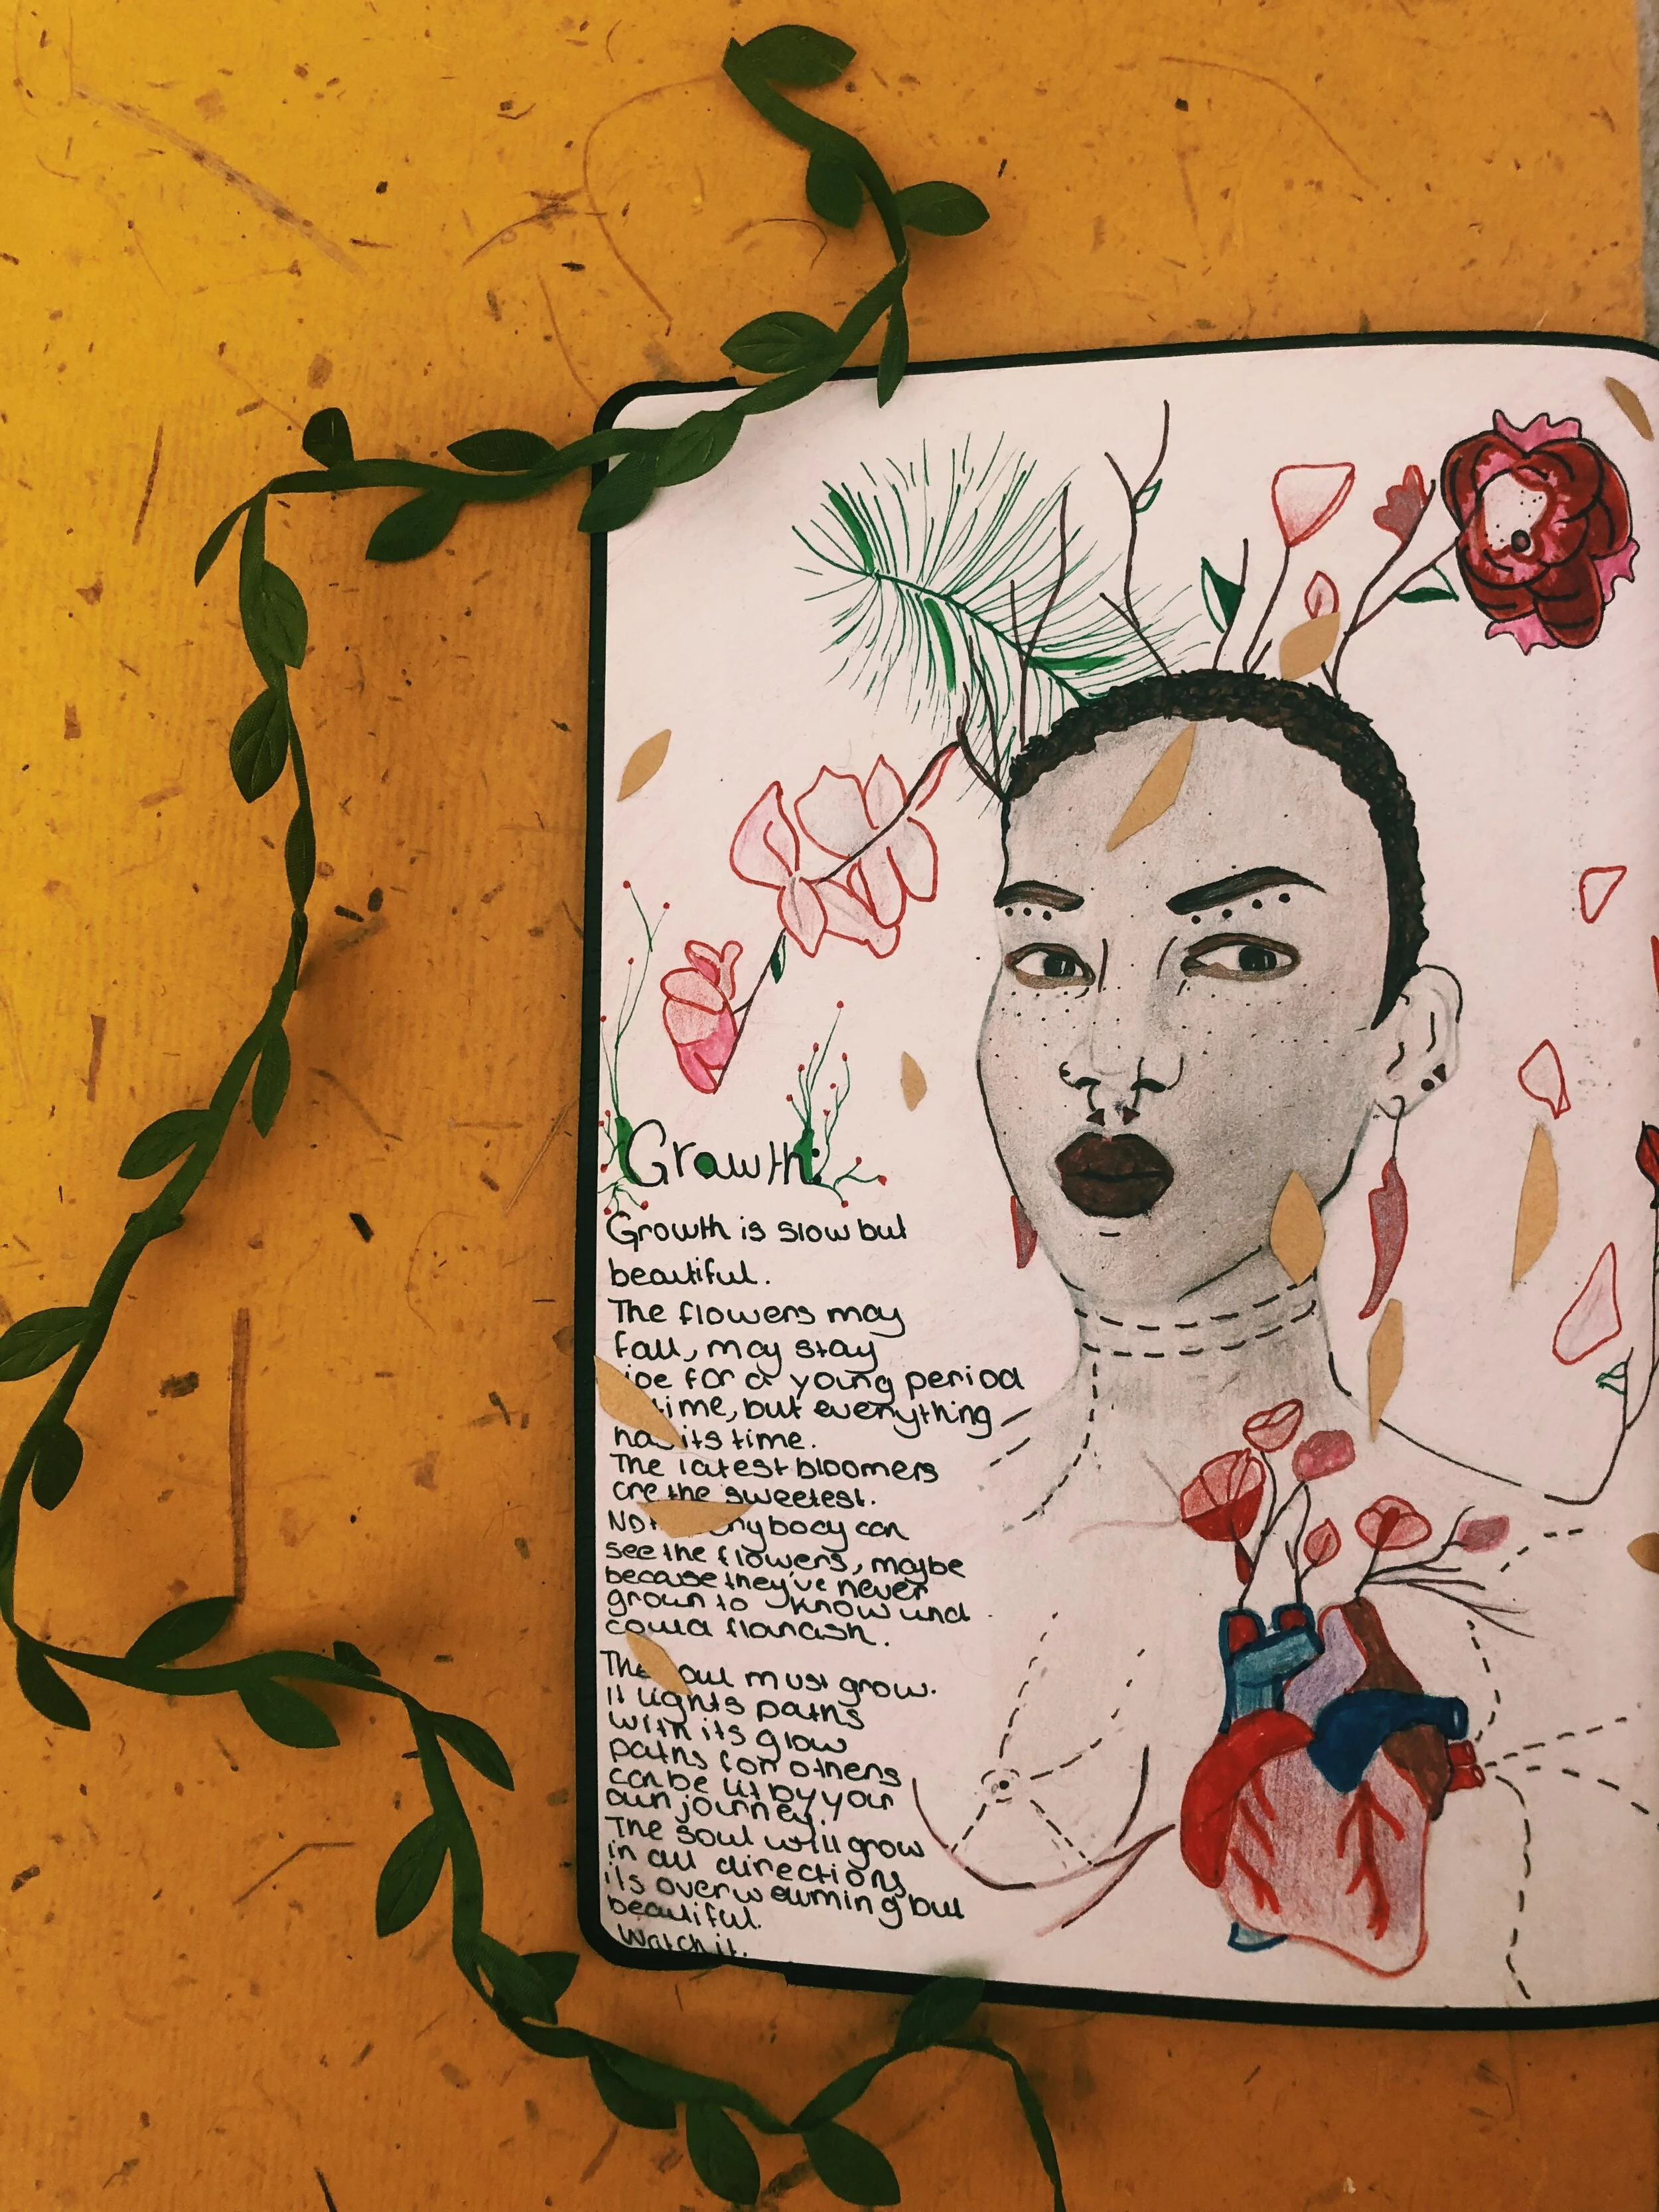 Growth:
Growth is slow but
beautiful.
The flowers may
fall, may stay
for a young period
time, but everything
has its time.
The latest bloomers
are the sweetest.
body can
see the flowers, maybe
because they've never
grown to know und
could
The must grow.
It lights paths
with its glow
paths for others
can be lit by your
own journey.
The soul will grow
in all directions
its overwelming but
beautiful.
Watch it.